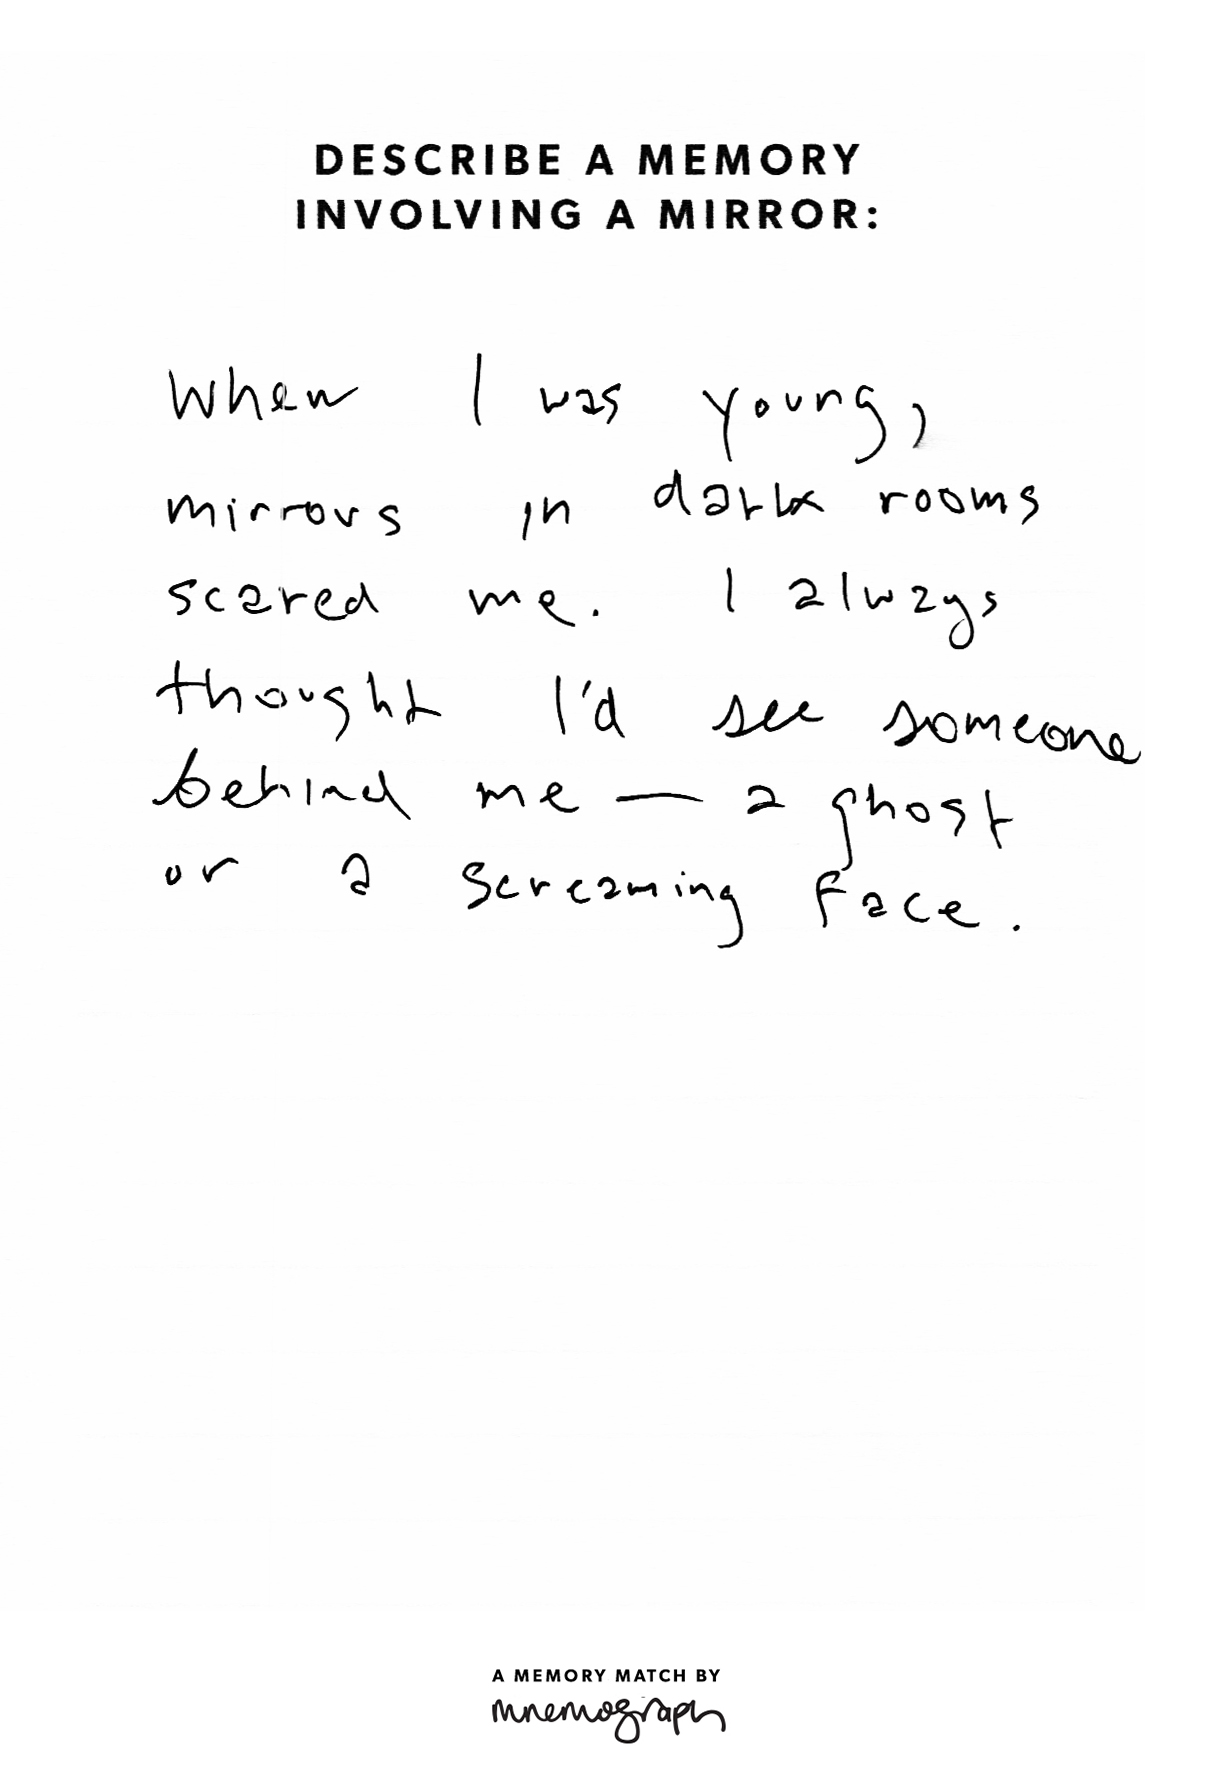 DESCRIBE A MEMORY
INVOLVING A MIRROR:
When I was young,
mirrors in dark rooms
scared me. I always
thought I'd see someone
behind me — a ghost
or a screaming face.
A MEMORY MATCH BY
mnemograph